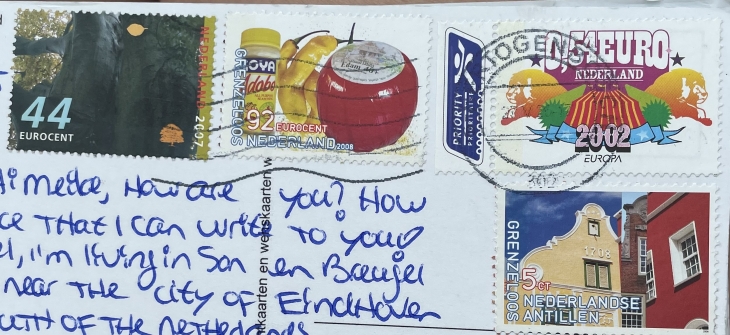 44
EUROCENT
NEDERLAND 2007
GRENZELOOS
GOYA
Adobo
Edam
92 EUROCENT
NEDERLAND 2008
PRIORITY
PRIORITAIRE
TOGEN
0,54 EURO
NEDERLAND
2002
EUROPA
GRENZELOOS
1708
5 CT
NEDERLANDSE
ANTILLEN
kaarten en wenskaarten w
tkaarten en wenskaarten
Hi Meike, How are you? How
ce THAT I CAN write TO you
el, I'm living in Son en Breugel
near THE CITY OF EINDHOVEN
OUTH OF THE NETHERLANDS